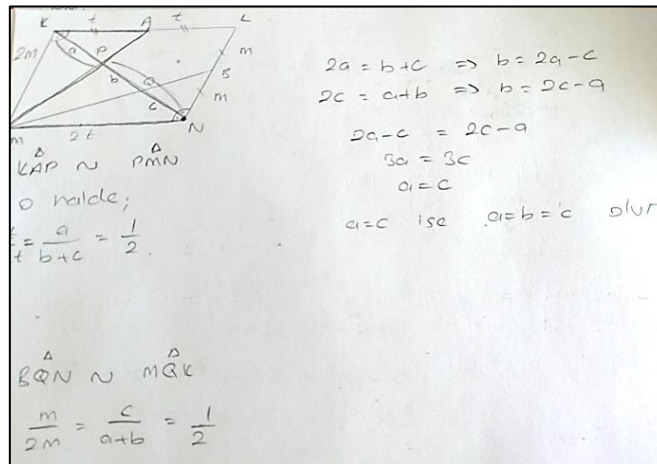 K t A t L
2m a P m
b Q B
c m
M 2t N
KAP ~ PMN
o halde;
t/2t = a/(b+c) = 1/2
BQN ~ MQK
m/2m = c/(a+b) = 1/2
2a = b+c => b = 2a-c
2c = a+b => b = 2c-a
2a-c = 2c-a
3a = 3c
a=c
a=c ise a=b=c olur